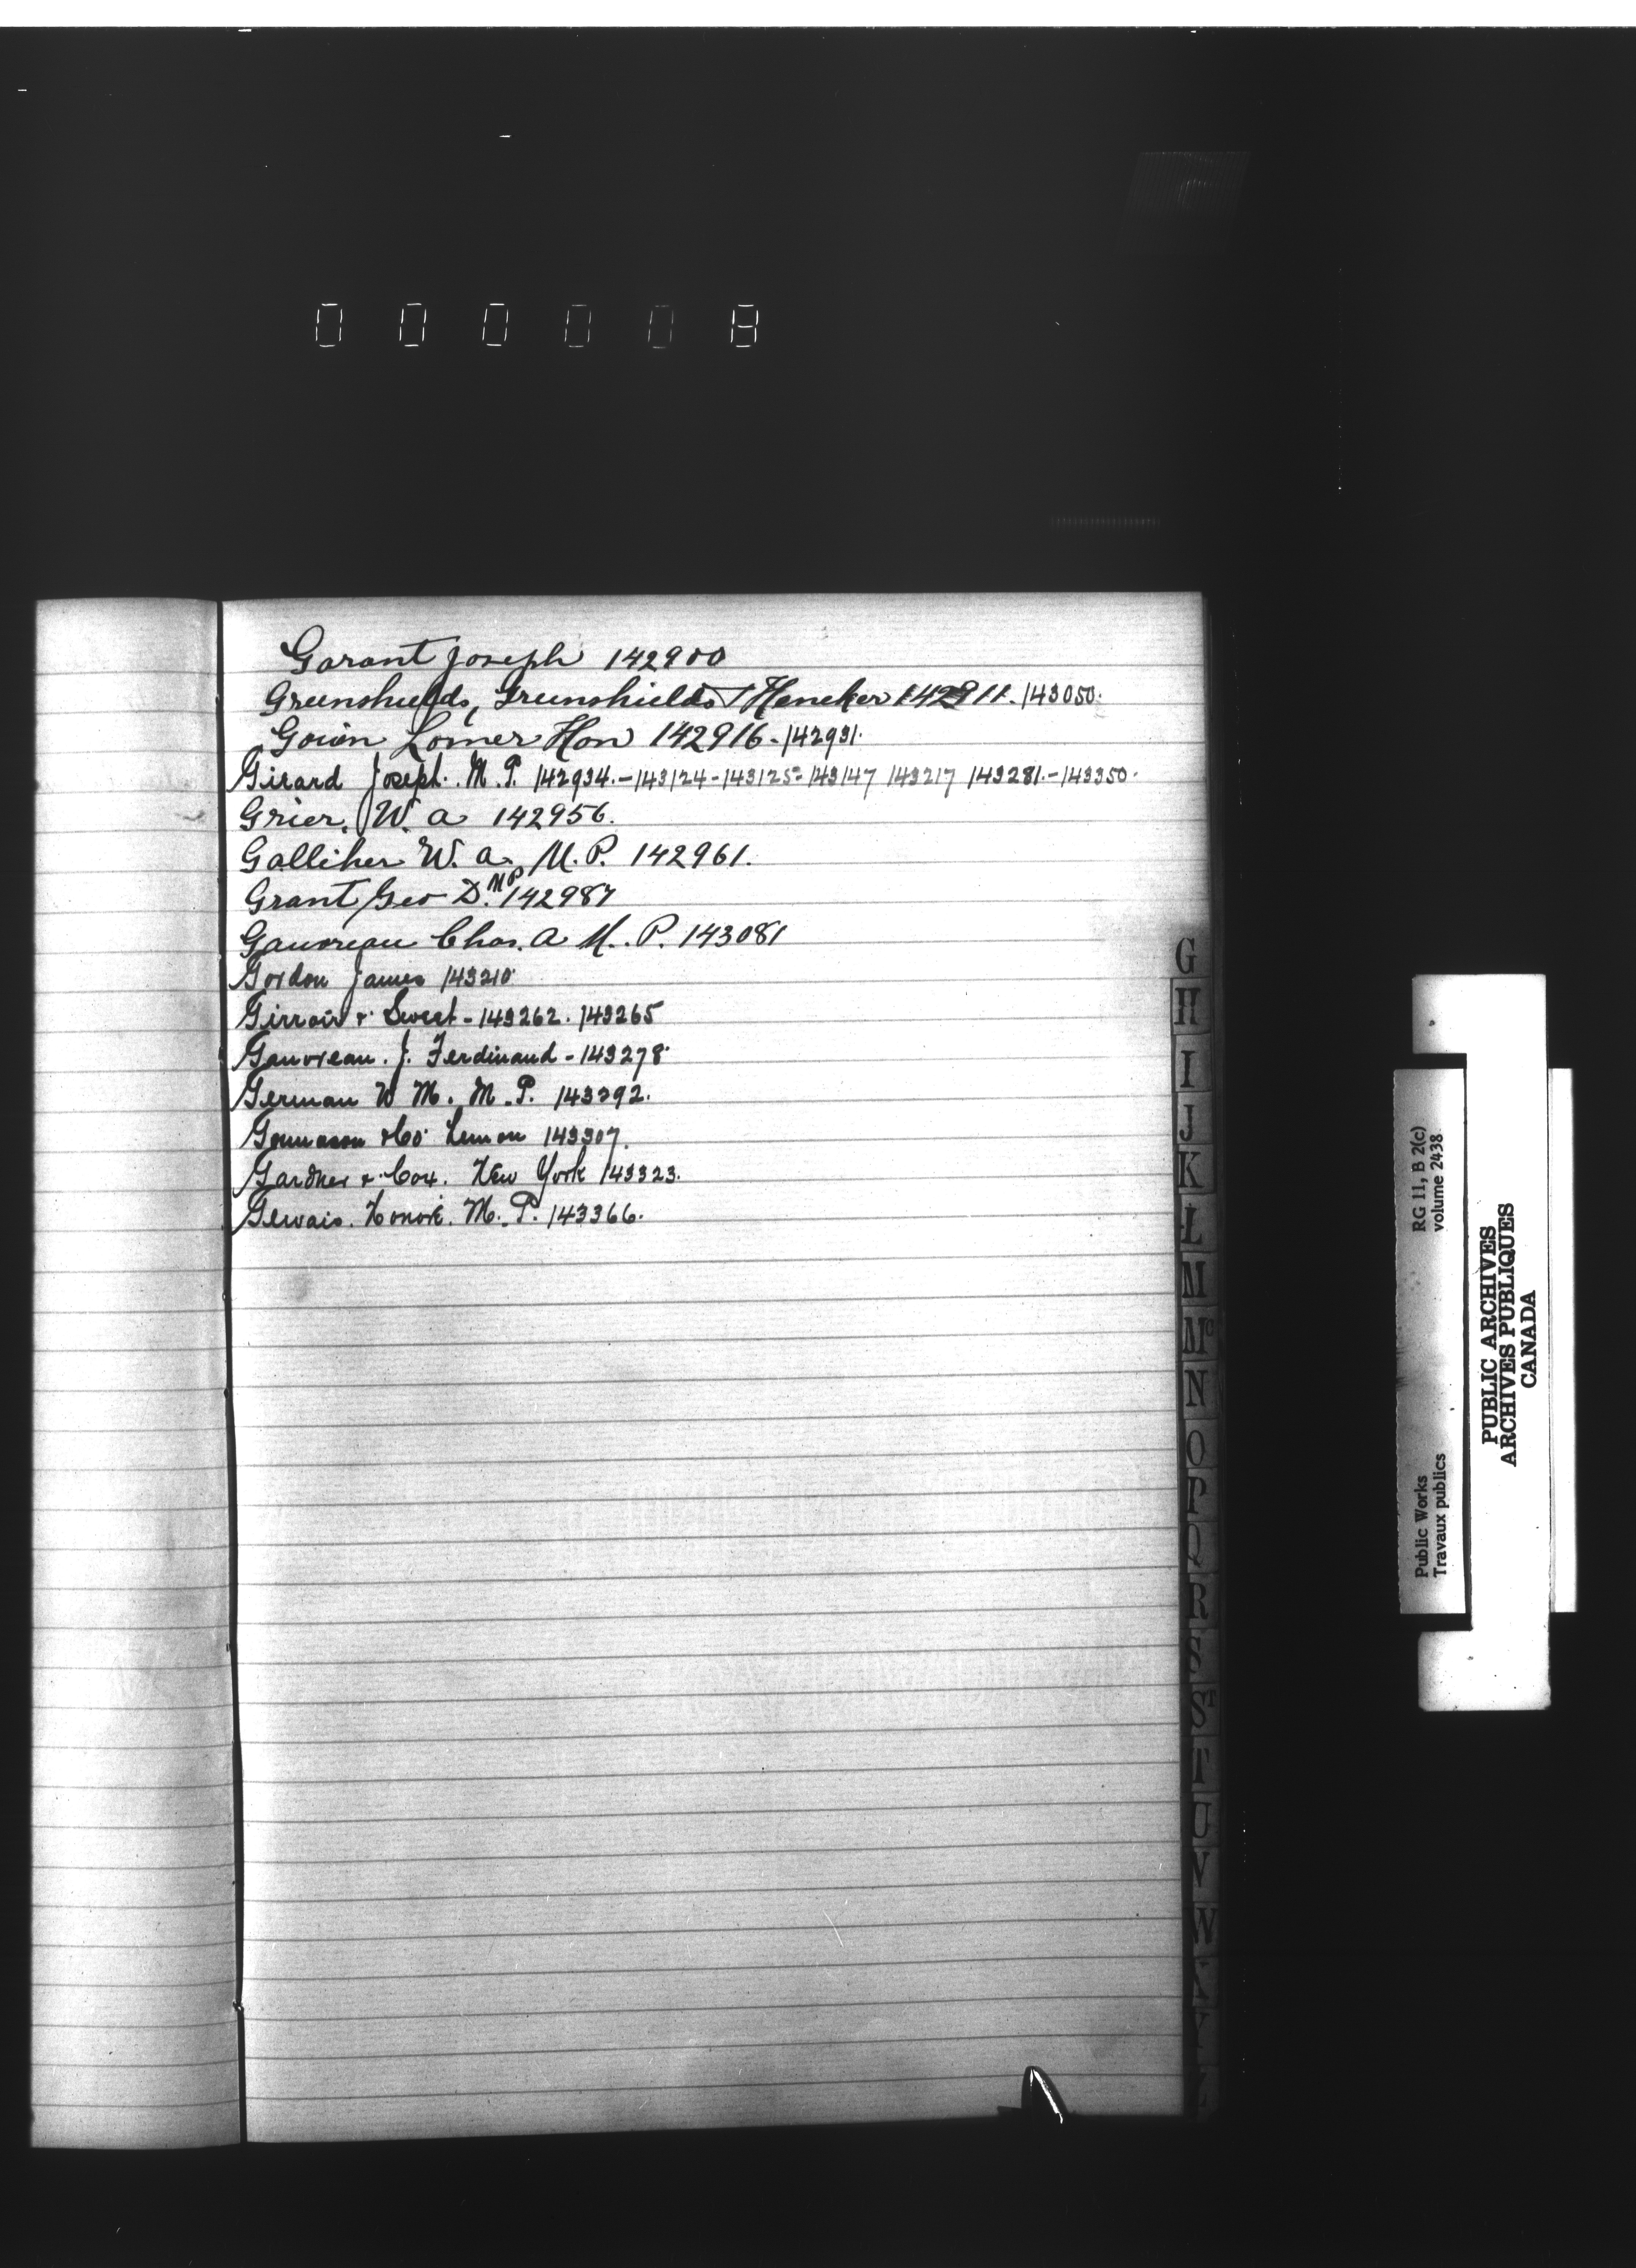 000008
Garant Joseph 142900
Greenshields, Greenshields & Heneker 142911. 143050.
Gouin Lomer Hon 142916 - 142931.
Girard Joseph. M. P. 142934. - 143124 - 143125 - 143147 143217 143281. - 143350.
Grier, W. a 142956.
Galliher W. a. M. P. 142961.
Grant Geo D. MP 142987
Gauvreau Chas. A M. P. 143081
Gordon James 143210
Girroir & Sweet - 143262. 143265
Gauvreau. J. Ferdinand - 143278
German W M. M. P. 143292.
& Co. 143307.
Gardner & Cox. New York 143323.
Gervais. Honoré. M. P. 143366.
G
H
I
J
K
L
M
Mc
N
O
P
Q
R
S
ST
T
U
V
W
Public Works
Travaux publics
RG 11, B 2(c)
volume 2438
PUBLIC ARCHIVES
ARCHIVES PUBLIQUES
CANADA